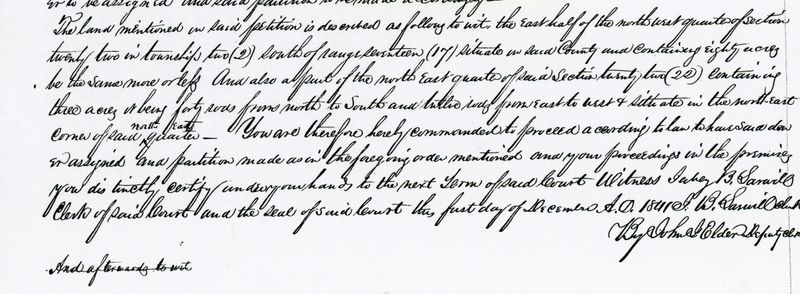 er to be assigned and said partition to be made accordingly
The land mentioned in said petition is described as follows to wit, the East half of the north west quarter of section
twenty two in township two (2) south of range seventeen (17) situate in said County and containing eighty acres
be the same more or less And also a part of the north East quarter of said Section twenty two (22) containing
three acres & being forty rods from north to South and twelve rods from East to west & situate in the north East
corner of said north East quarter — You are therefore hereby commanded to proceed according to law to have said dow
er assigned and partition made as in the foregoing order mentioned and your proceedings in the premises
you distinctly certify under your hands to the next Term of said Court Witness B. Sarvill
Clerk of said Court and the seal of said Court this first day of December A.D. 1841 B. Sarvill Clerk
By John J Elder Deputy Clerk
And afterwards to wit